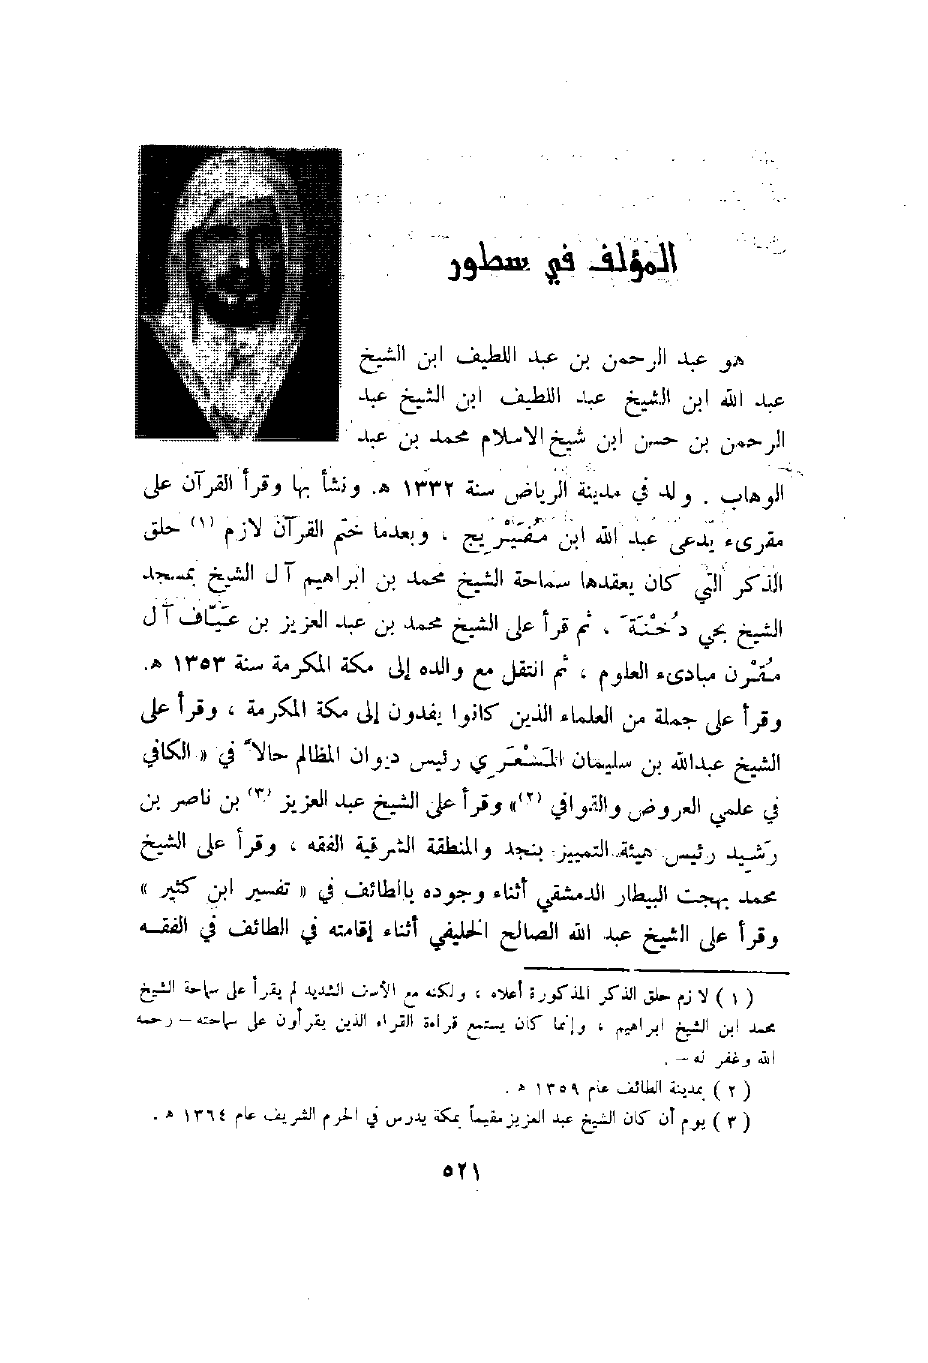 المؤلف في سطور
هو عبد الرحمن بن عبد اللطيف ابن الشيخ
عبد الله ابن الشيخ عبد اللطيف ابن الشيخ عبد
الرحمن بن حسن ابن شيخ الاسلام محمد بن عبد
الوهاب . ولد في مدينة الرياض سنة ١٣٣٢ هـ. ونشأ بها وقرأ القرآن على
مقرىء يدعى عبد الله ابن مُفَيْرِيج ، وبعدما ختم القرآن لازم (١) حلق
الذكر التي كان يعقدها سماحة الشيخ محمد بن ابراهيم آل الشيخ بمسجد
الشيخ بحي دُخْنَة ، ثم قرأ على الشيخ محمد بن عبد العزيز بن عَيَّاف آل
مُقْرن مبادىء العلوم ، ثم انتقل مع والده إلى مكة المكرمة سنة ١٣٥٣ هـ.
وقرأ على جملة من العلماء الذين كانوا يفدون إلى مكة المكرمة ، وقرأ على
الشيخ عبدالله بن سليمان المَسْعَري رئيس ديوان المظالم حالاً في « الكافي
في علمي العروض والقوافي (٢)» وقرأ على الشيخ عبد العزيز (٣) بن ناصر بن
رَشيد رئيس هيئة التمييز بنجد والمنطقة الشرقية الفقه ، وقرأ على الشيخ
محمد بهجت البيطار الدمشقي أثناء وجوده بالطائف في « تفسير ابن كثير »
وقرأ على الشيخ عبد الله الصالح الخليفي أثناء إقامته في الطائف في الفقـه
( ١ ) لازم حلق الذكر المذكورة أعلاه ، ولكنه مع الأسف الشديد لم يقرأ على سماحة الشيخ
محمد ابن الشيخ ابراهيم ، وإنما كان يستمع قراءة القراء الذين يقرأون على سماحته – رحمه
الله وغفر له – .
( ٢ ) بمدينة الطائف عام ١٣٥٩ هـ .
( ٣ ) يوم أن كان الشيخ عبد العزيز مقيماً بمكة يدرس في الحرم الشريف عام ١٣٦٤ هـ .
٥٢١